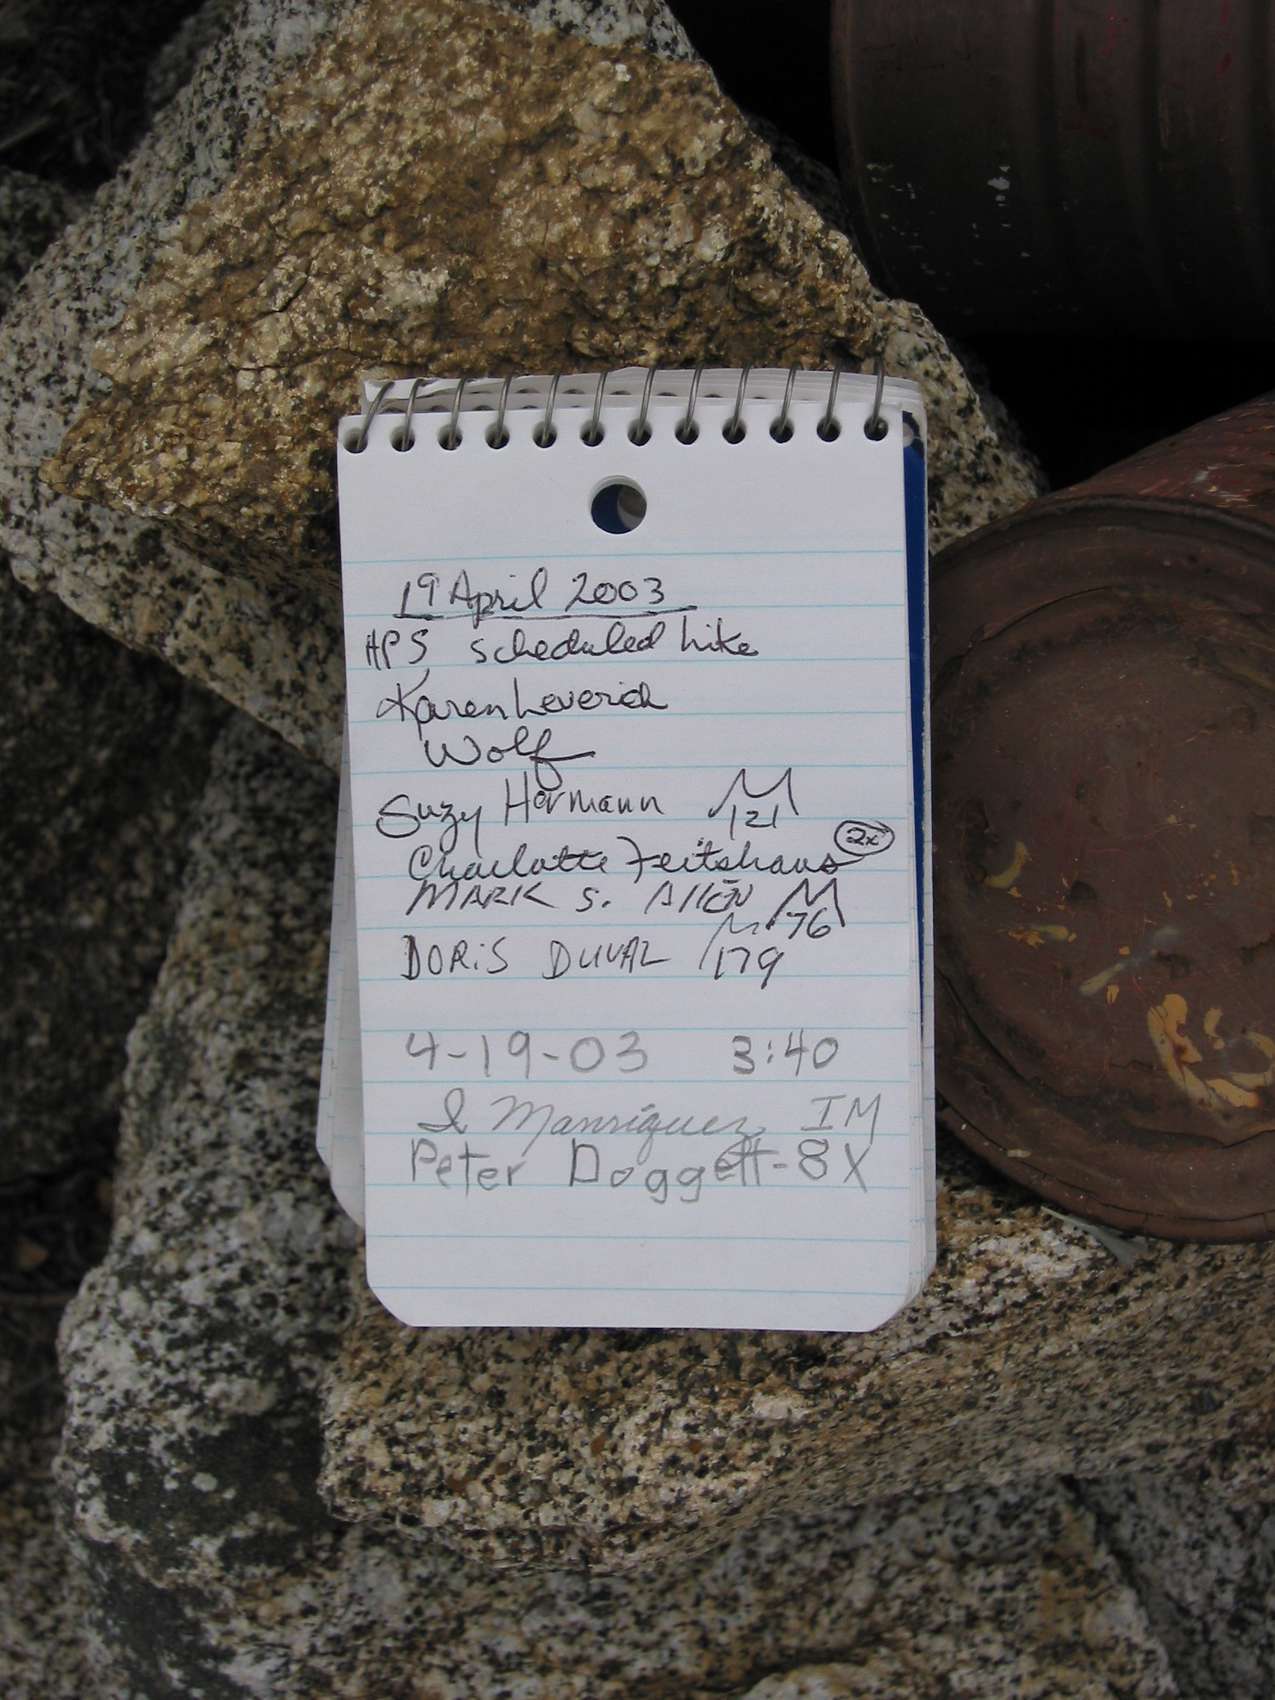 19 April 2003
HPS scheduled hike
Karen Leverich
Wolf
Suzy Hermann M 121
Charlotte Feitshans 2x
MARK S. AllEN M 76
DORiS DUVAL M 179
4-19-03 3:40
I Manriquez IM
Peter Doggett-8X